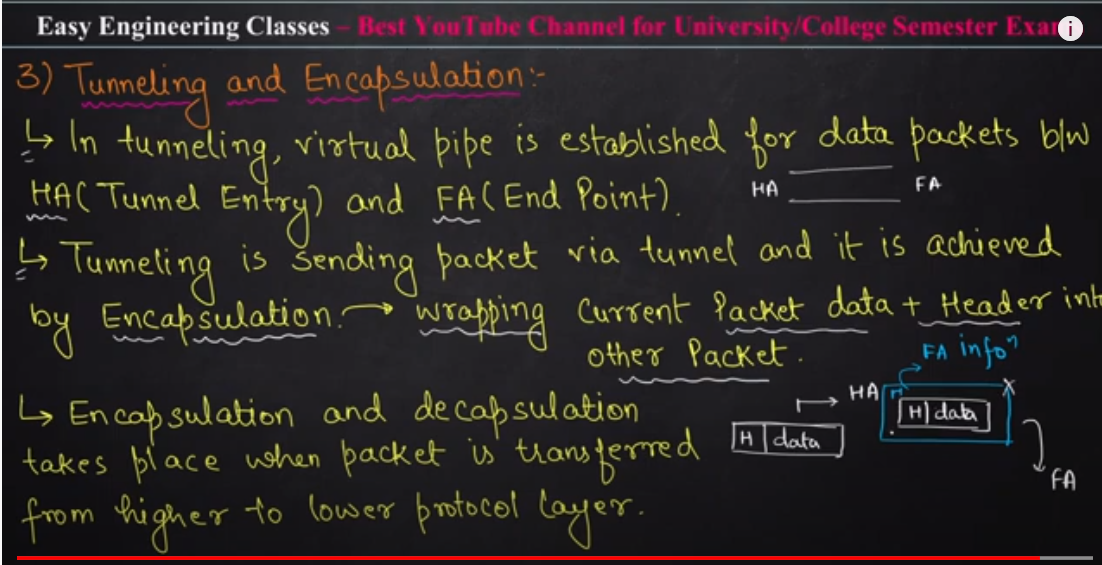 Easy Engineering Classes – Best YouTube Channel for University/College Semester Exa
i
3) Tunneling and Encapsulation:-
↳ In tunneling, virtual pipe is established for data packets b/w
HA (Tunnel Entry) and FA (End Point).
HA FA
↳ Tunneling is sending packet via tunnel and it is achieved
by Encapsulation. → wrapping Current Packet data + Header int
other Packet.
FA infoⁿ
↳ Encapsulation and decapsulation
takes place when packet is transferred
from higher to lower protocol layer.
→ HA
H
X
H | data
H | data
FA